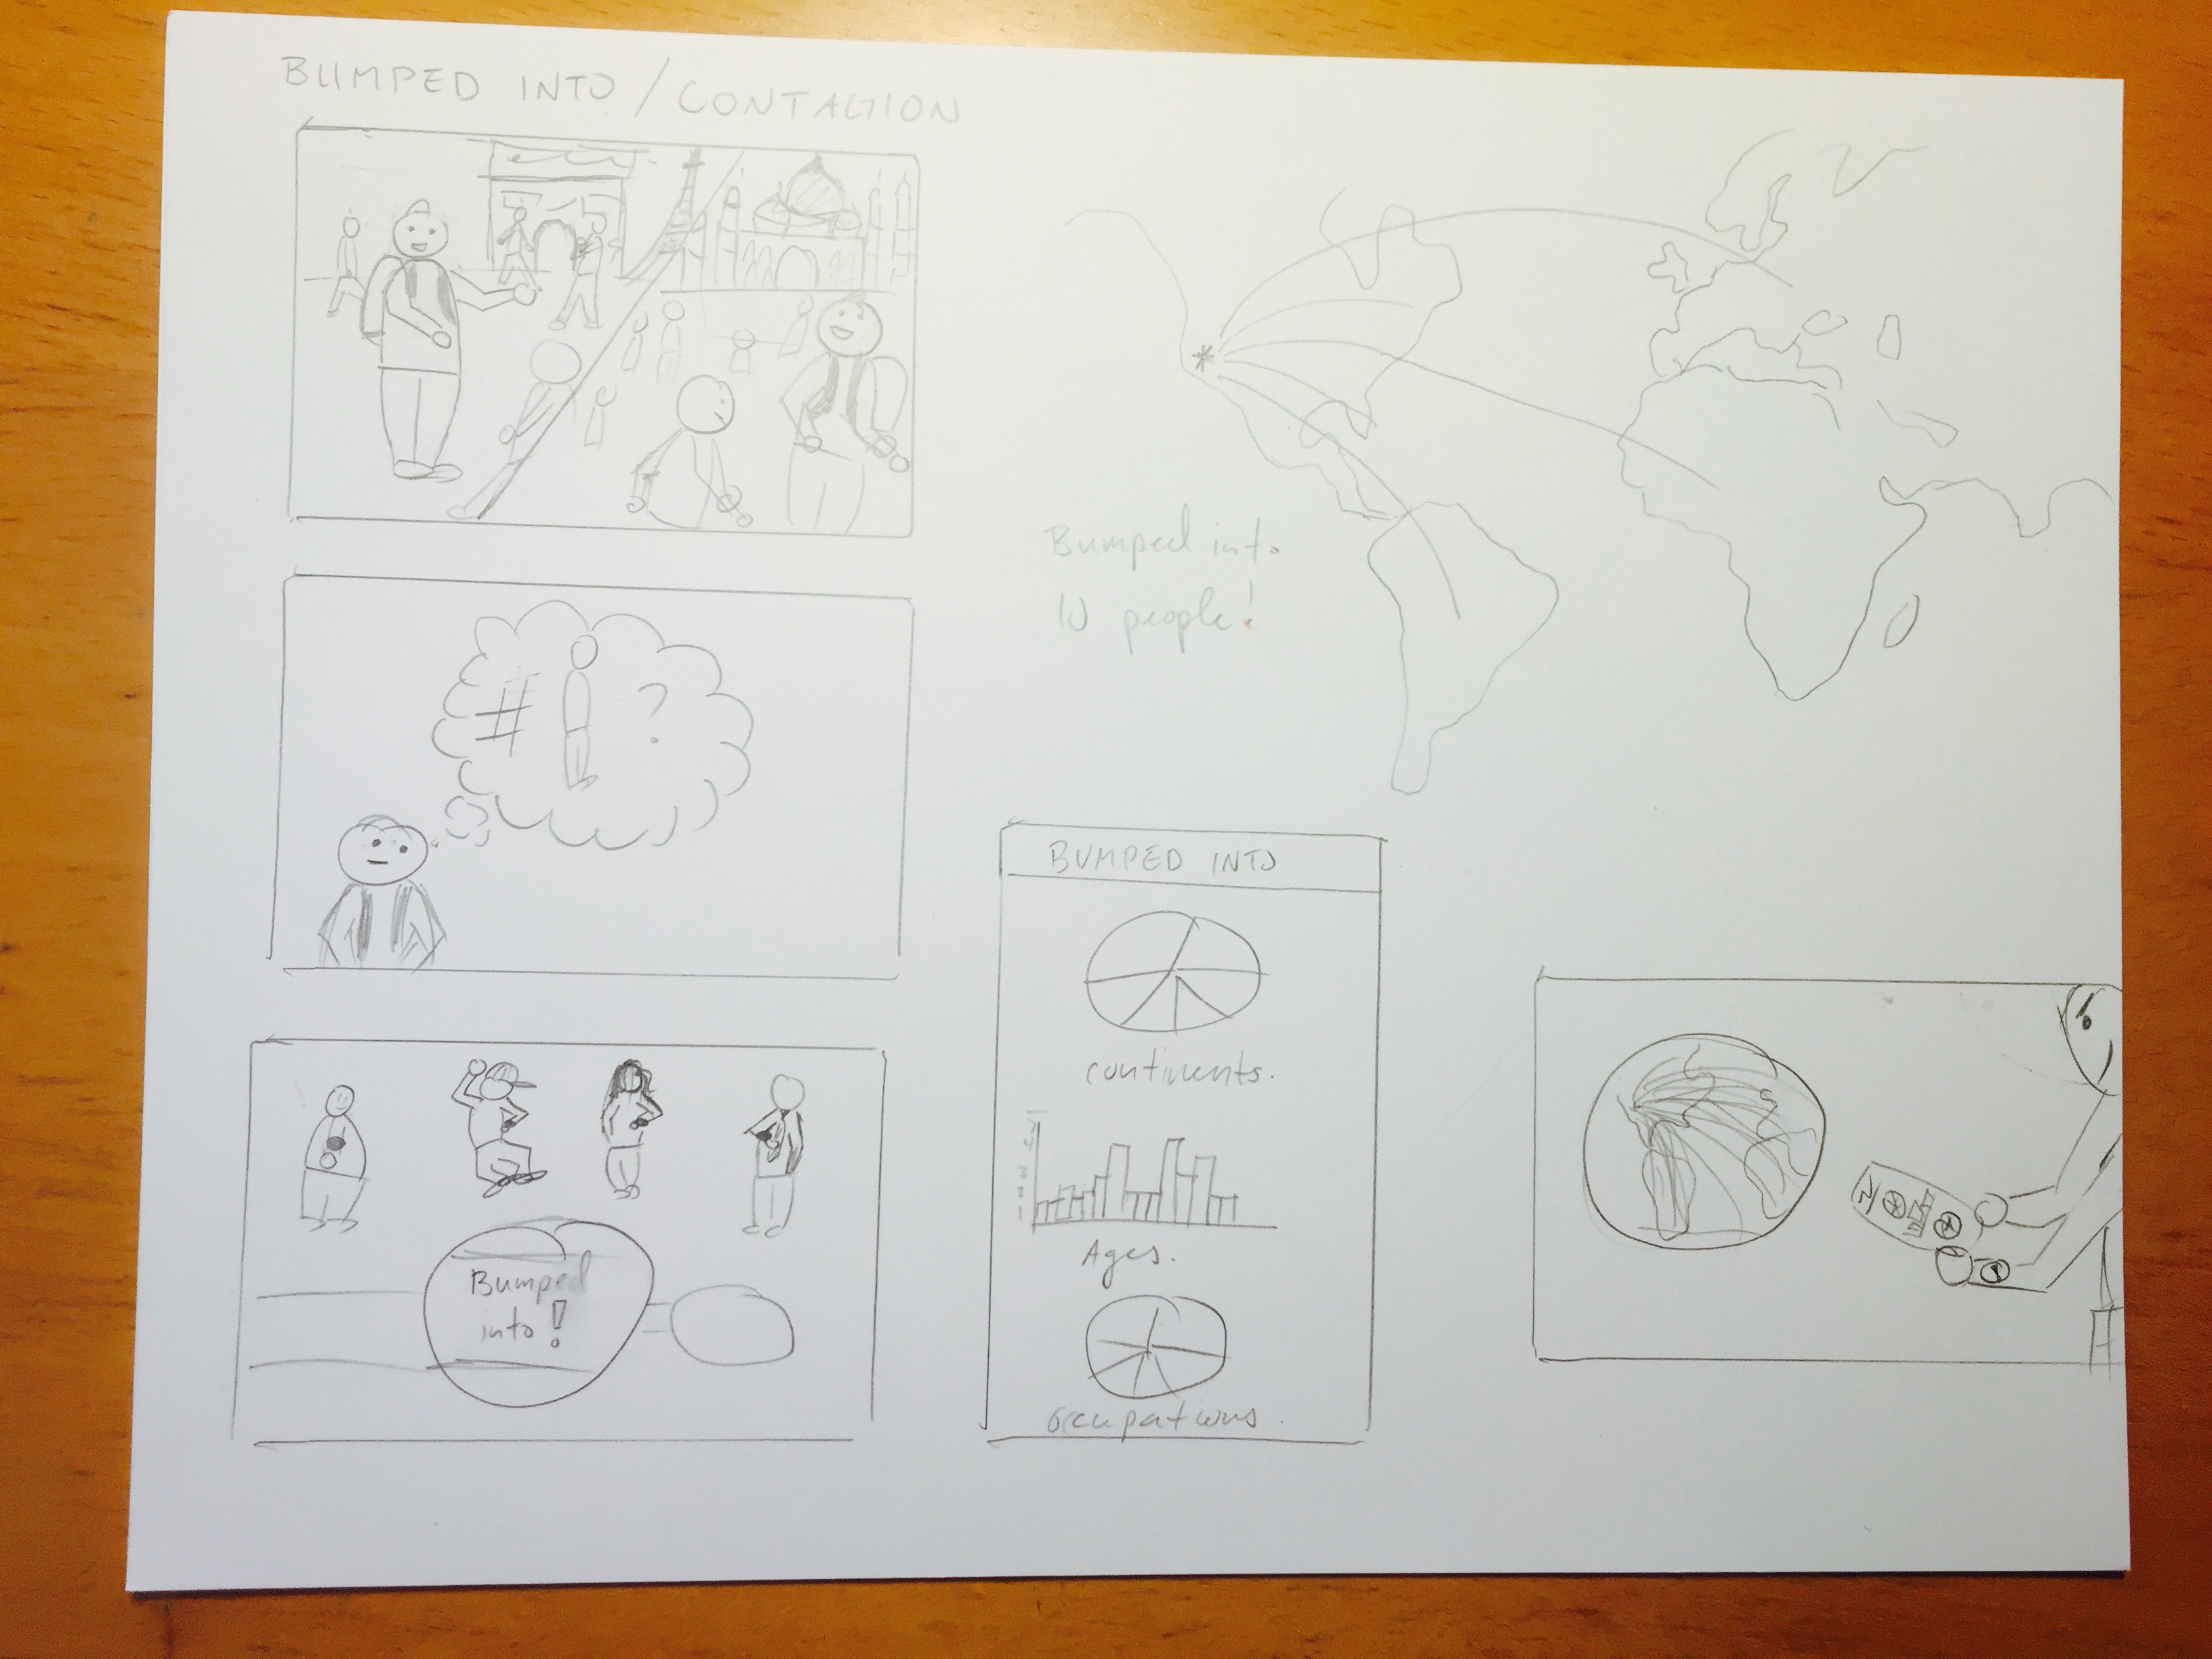 BUMPED INTO / CONTAGION
#
?
Bumped into
10 people!
Bumped
into!
BUMPED INTO
continents.
Ages.
occupations.